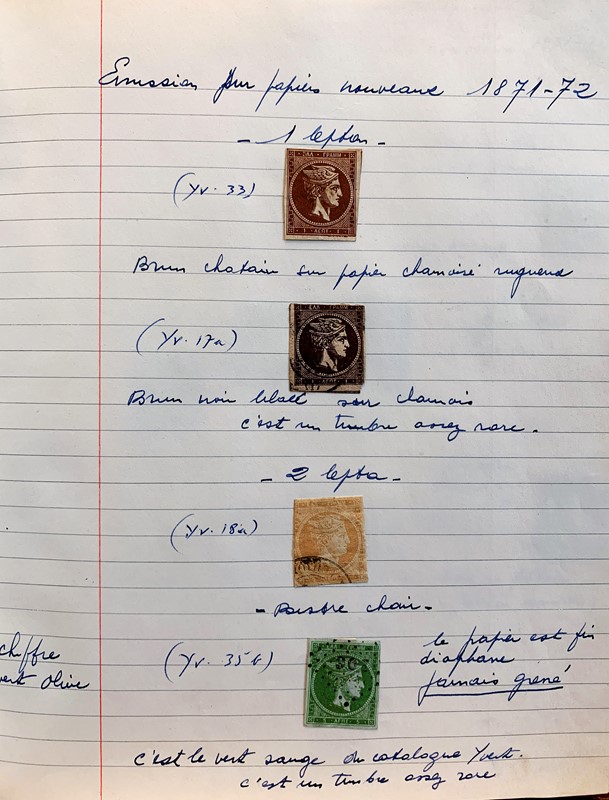 Emission sur papiers nouveaux 1871-72
- 1 lepton -
(Yv. 33)
ΕΛΛ ΓΡΑΜΜ
1 ΛΕΠΤ 1
Brun chatain sur papier chamoisé rugueux
(Yv. 17a)
Brun noir sur chamois
c'est un timbre assez rare.
- 2 lepta -
(Yv. 18a)
- chair -
chiffre
vert olive
(Yv. 35b)
le papier est fin
diaphane
jamais grené
5 ΛΕΠΤ 5
c'est le vert sauge du catalogue Yvert.
c'est un timbre assez rare